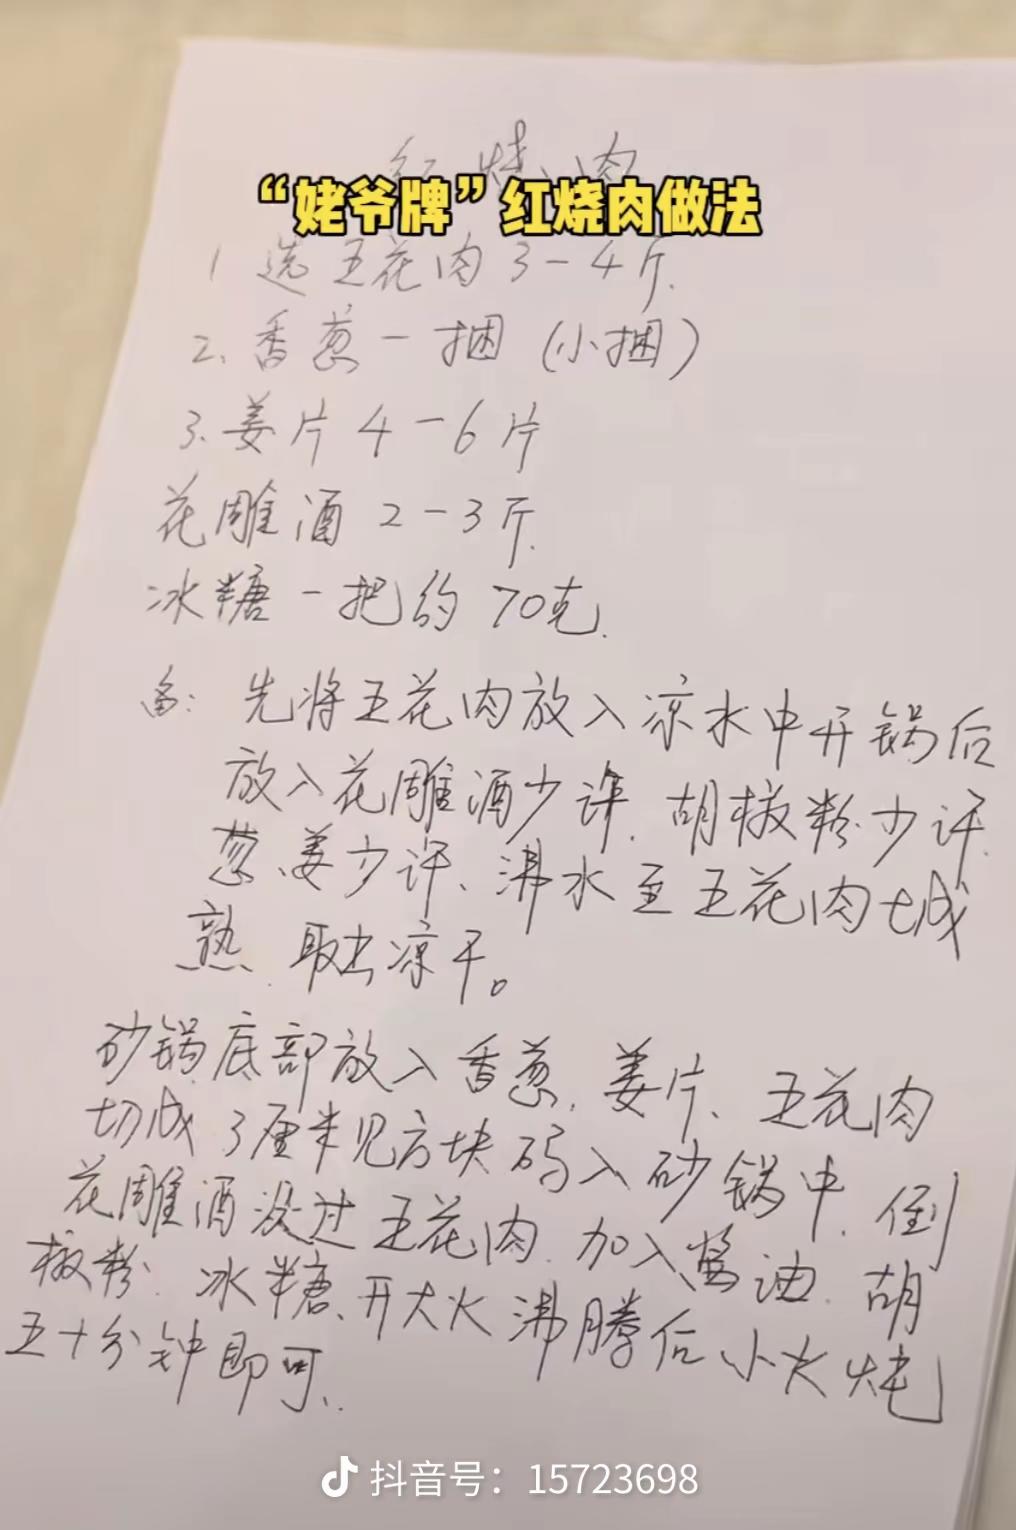 红烧肉
“姥爷牌”红烧肉做法
1 选五花肉3-4斤.
2. 香葱一捆(小捆)
3. 姜片4-6片
花雕酒2-3斤.
冰糖一把约70克.
备: 先将五花肉放入凉水中开锅后
放入花雕酒少许.胡椒粉少许.
葱、姜少许、沸水至五花肉七成
熟.取出凉干。
砂锅底部放入香葱.姜片、五花肉
切成3厘米见方块码入砂锅中.倒
花雕酒没过五花肉.加入酱油.胡
椒粉.冰糖、开大火沸腾后小火炖
五十分钟即可.
抖音号：15723698